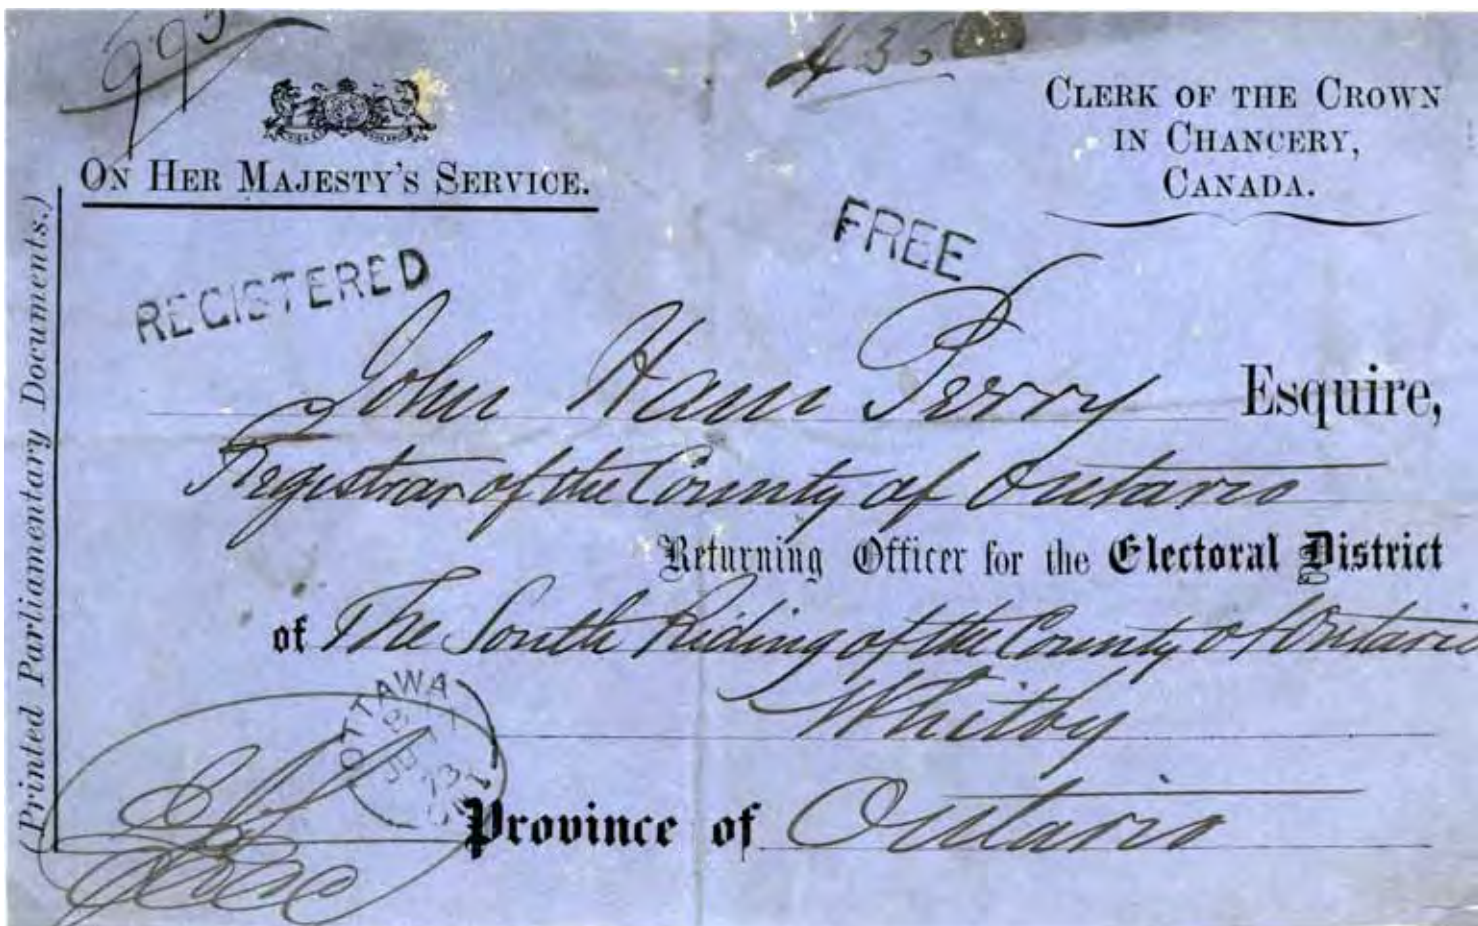 995
435
CLERK OF THE CROWN
IN CHANCERY,
CANADA.
ON HER MAJESTY'S SERVICE.
(Printed Parliamentary Documents.)
REGISTERED
FREE
John Ham Perry Esquire,
Registrar of the County of Ontario
Returning Officer for the Electoral District
of The South Riding of the County of Ontario
Whitby
OTTAWA
73
Province of Ontario